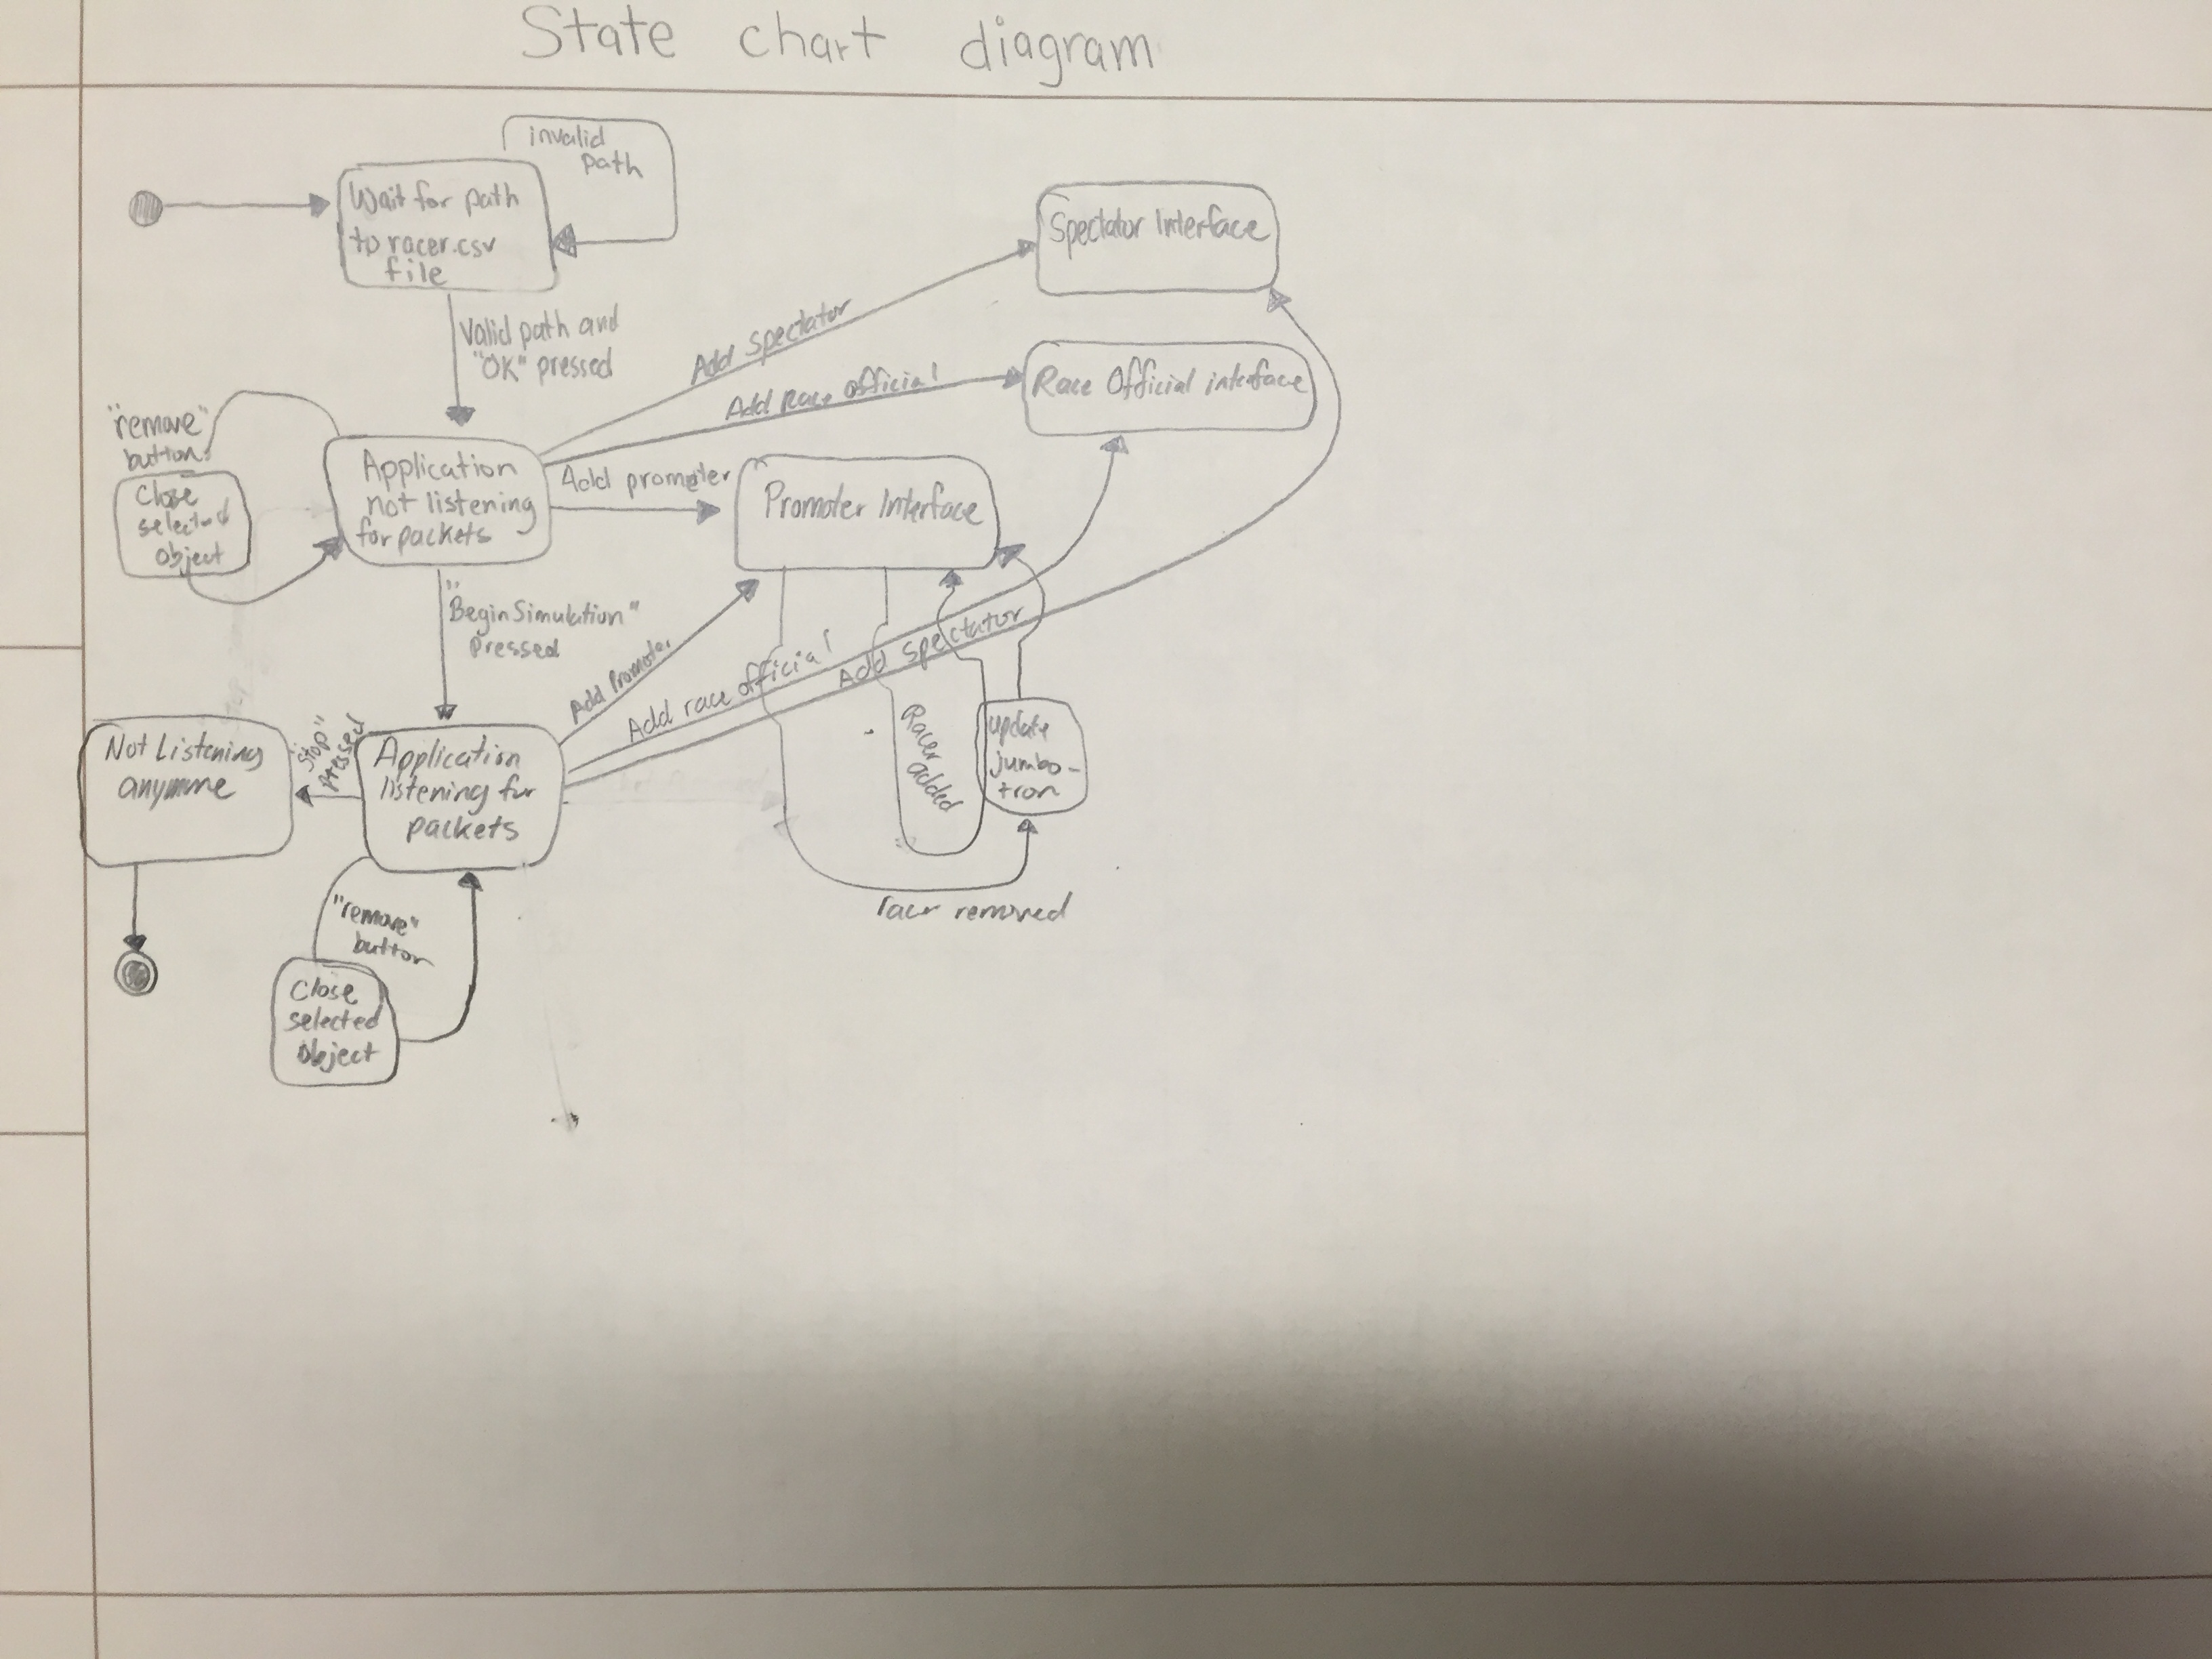 State chart diagram
invalid
path
Wait for path
to racer.csv
file
Spectator Interface
Valid path and
"OK" pressed
Add Spectator
Race Official interface
Add Race official
"remove"
button
Close
selected
object
Application
not listening
for packets
Add promoter
Promoter Interface
"Begin Simulation"
Pressed
Add Promoter
Add race official
Add Spectator
Not Listening
anymore
"Stop"
Pressed
Application
listening for
packets
Racer
added
update
jumbo-
tron
racer removed
"remove"
button
Close
selected
object